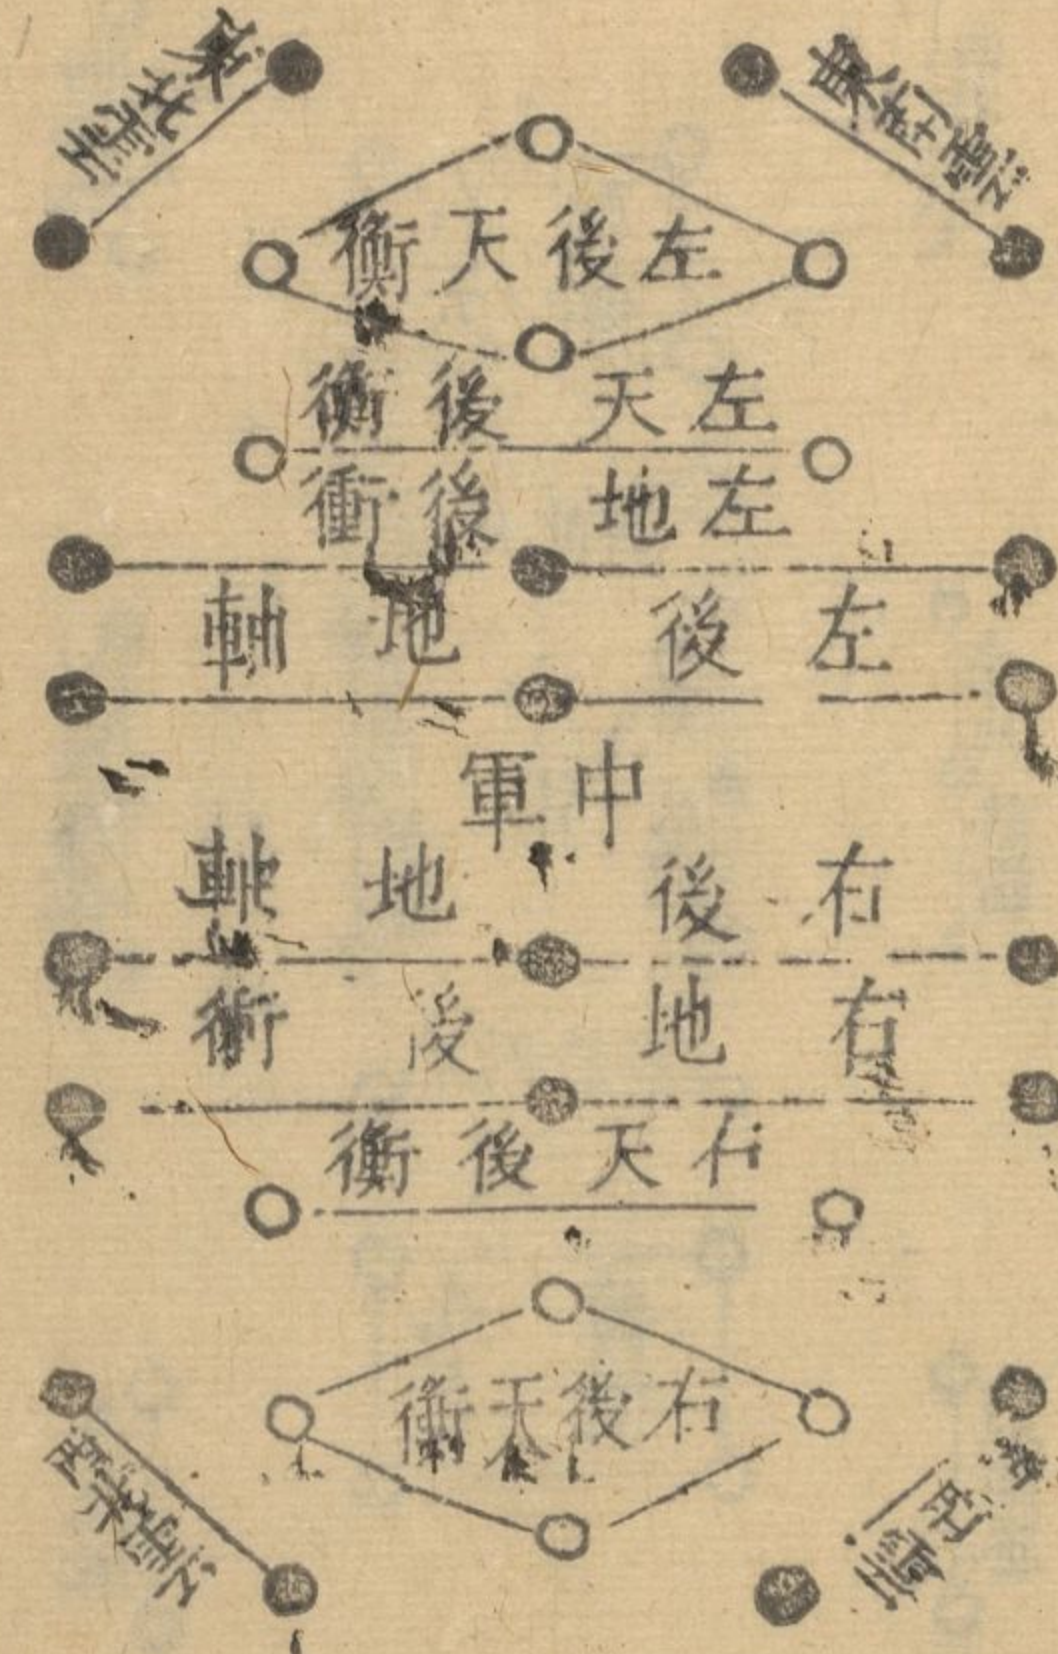 東南雲
東北雲
左後天衡
左天後衡
左地後衝
左後地軸
中軍
右後地軸
右地後衝
右天後衡
右後天衡
南雲
西北雲